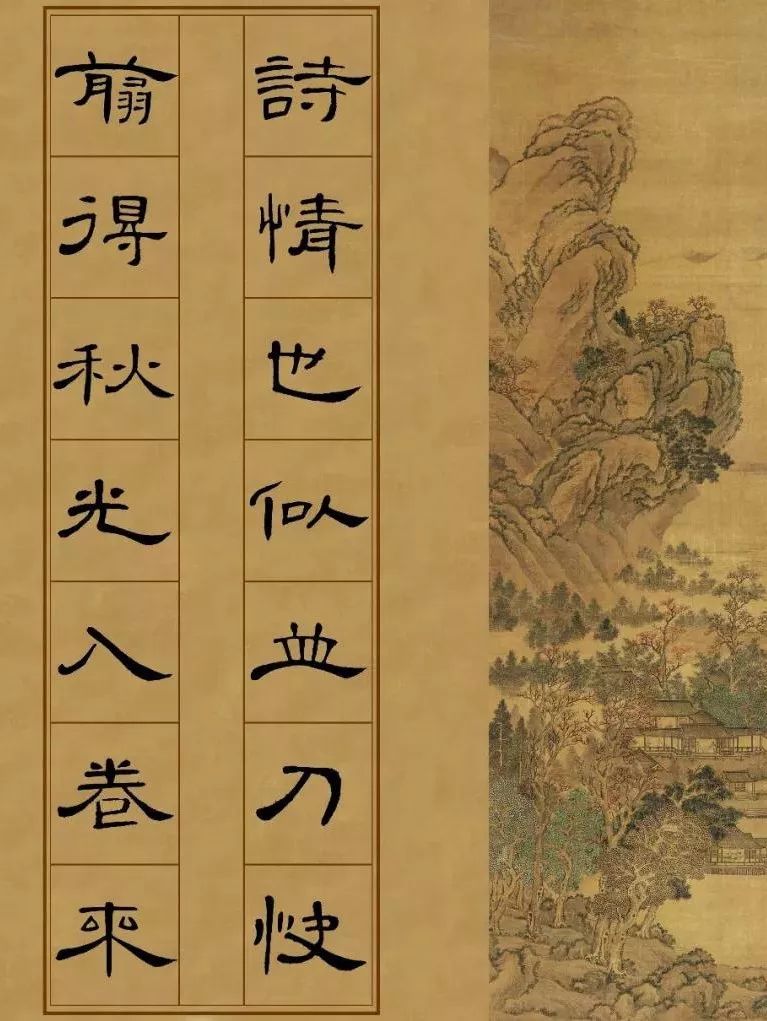 詩情也似並刀快
翦得秋光入卷來